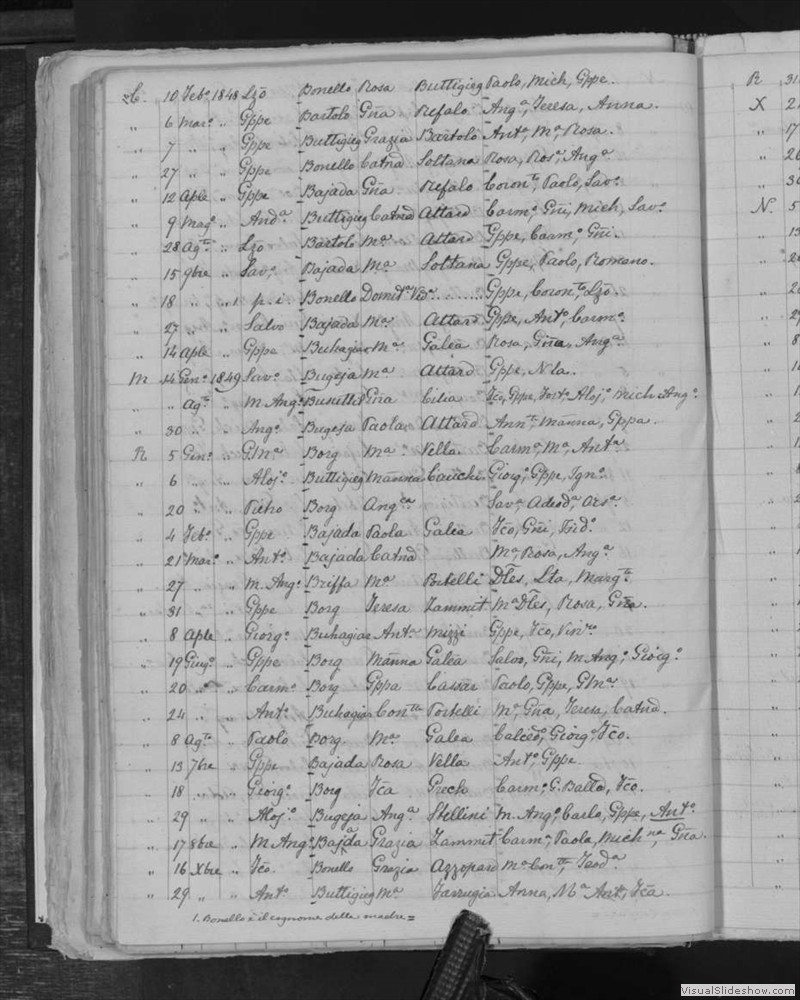 C. 10 Febo 1848 Lzo Bonello Rosa Buttigieg Paolo, Mich, Gppe.
" 6 Maro " Gppe Bartolo Gña Refalo Anga, Teresa, Anna.
" 7 " " Gppe Buttigieg Grazia Bartolo Anto, Ma Rosa.
" 27 " " Gppe Bonello Catnd Soltana Rosa, Rosa, Anga
" 12 Aple " Gppe Bajada Gña Refalo Coronta, Paolo, Savo
" 9 Mago " Anda Buttigieg Catnd Attard Carmo, Gñi, Mich, Savo
" 28 Agto " Lzo Bartolo Ma Attard Gppe, Carmo, Gñi.
" 15 9bre " Savo Bajada Ma Soltana Gppe, Paolo, Romano.
" 18 " " 1. p. i. Bonello ........ Gppe, Coronto, Lzo
" 27 " " Salvo Bajada Ma Attard Gppe, Anto, Carmo
" 14 Aple " Gppe Buhagiar Ma Galea Rosa, Gña, Anga
M 14 Geno 1849 Savo Bugeja Ma Attard Gppe, Nla.
" " Agto " M. Ango Busuttil Gña Cilia Fco, Gppe, Forto, Alojo, Mich Ango
" 30 " " Ango Bugeja Paola Attard Annta, Manna, Gppa.
R 5 Geno " GMa Borg Ma Vella Carma, Ma, Anta
" 6 " " Alojo Buttigieg Mannea Cauchi Giorgo, Gppe, Igno
" 20 " " Pietro Borg Angca Savo Adeoda, Orsa
" 4 Febo " Gppe Bajada Paola Galea Fco, Gñi, Ferdo
" 21 Maro " Anto Bajada Catnd Ma Rosa, Anga
" 27 " " M. Ango Briffa Ma Portelli Dles, Lta, Marga
" 31 " " Gppe Borg Teresa Zammit Ma Dles, Rosa, Gña.
" 8 Aple " Giorgo Buhagiar Anta Mizzi Gppe, Fco, Vinzo
" 19 Giugo " Gppe Borg Manna Galea Salvo, Gñi, M Ango, Giorgo
" 20 " " Carmo Borg Gppa Cassar Paolo, Gppe, GMa
" 24 " " Anto Buhagiar Contta Portelli Ma, Gña, Teresa, Catnd.
" 8 Agto " Paolo Borg Ma Galea Calcedo, Giorgo, Fco.
" 13 7bre " Gppe Bajada Rosa Vella Anto, Gppe.
" 18 " " Giorgo Borg Fca Grech Carmo, G. Batta, Fco.
" 29 " " Alojo Bugeja Anga Stellini M. Ango, Carlo, Gppe, Anto
" 17 8bre " M Ango Bajda Grazia Zammit Carmo, Paola, Michna, Gña.
" 16 Xbre " Fco Bonello Grazia Azzopard Ma Contta, Teoda
" 29 " " Anto Buttigieg Ma Farrugia Anna, Ma Ant, Fca.
1. Bonello è il cognome della madre =
R 31
X 2
" 17
" 26
" 30
N. 5
VisualSlideshow.com